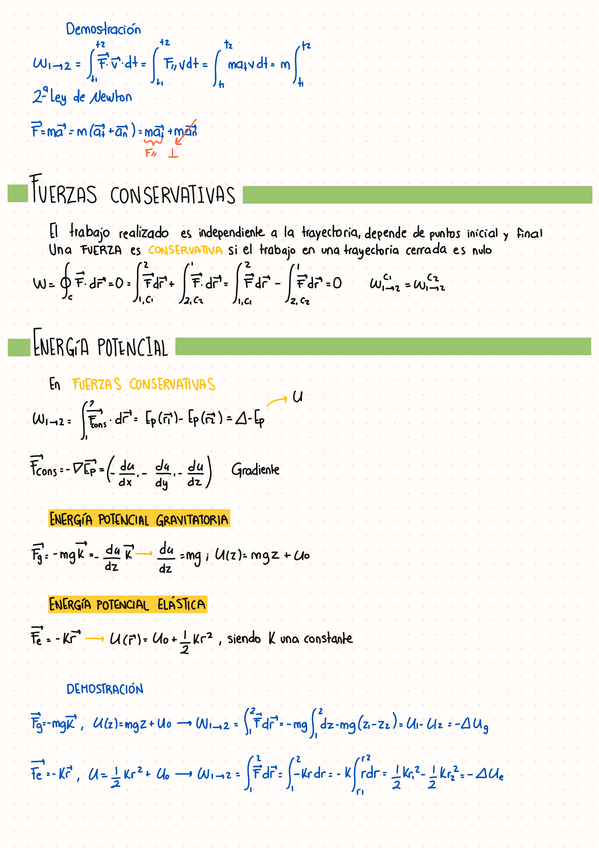 Demostración
W₁→₂ = ∫ₜ₁ᵗ² F⃗·v⃗·dt = ∫ₜ₁ᵗ² F∥ v dt = ∫ₜ₁ᵗ² maₜ v dt = m ∫ₜ₁ᵗ²
2ª Ley de Newton
F⃗ = ma⃗ = m(a⃗ₜ + a⃗ₙ) = ma⃗ₜ + ma⃗ₙ
F∥ ⊥
FUERZAS CONSERVATIVAS
El trabajo realizado es independiente a la trayectoria, depende de puntos inicial y final
Una FUERZA es CONSERVATIVA si el trabajo en una trayectoria cerrada es nulo
W = ∮c F⃗·dr⃗ = 0 = ∫₁,C₁² F⃗dr⃗ + ∫₂,C₂¹ F⃗·dr⃗ = ∫₁,C₁² F⃗dr⃗ - ∫₂,C₂¹ F⃗dr⃗ = 0 W₁→₂^C₁ = W₁→₂^C₂
ENERGÍA POTENCIAL
En FUERZAS CONSERVATIVAS
W₁→₂ = ∫₁² F⃗cons · dr⃗ = Ep(r⃗₁) - Ep(r⃗₂) = Δ-Ep → U
F⃗cons = -∇E⃗p = (-du/dx, -du/dy, -du/dz) Gradiente
ENERGÍA POTENCIAL GRAVITATORIA
F⃗g = -mgk⃗ = -du/dz k⃗ → du/dz = mg ; U(z) = mgz + U₀
ENERGÍA POTENCIAL ELÁSTICA
F⃗e = -Kr⃗ → U(r⃗) = U₀ + 1/2 Kr², siendo K una constante
DEMOSTRACIÓN
F⃗g = -mgk⃗, U(z) = mgz + U₀ → W₁→₂ = ∫₁² F⃗dr⃗ = -mg ∫₁² dz = mg(z₁-z₂) = U₁ - U₂ = -ΔUg
F⃗e = -Kr⃗, U = 1/2 Kr² + U₀ → W₁→₂ = ∫₁² F⃗dr⃗ = ∫₁² -Krdr = -K ∫r₁^r₂ rdr = 1/2 Kr₁² - 1/2 Kr₂² = -ΔUe